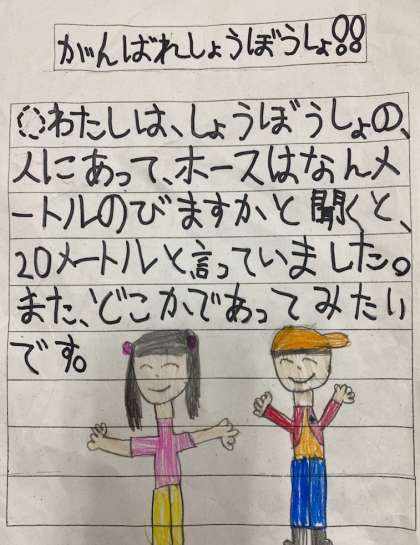 がんばれしょうぼうしょ!!
わたしは、しょうぼうしょの、
人にあって、ホースはなんメ
ートルのびますかと聞くと、
20メートルと言っていました。
また、どこかであってみたい
です。